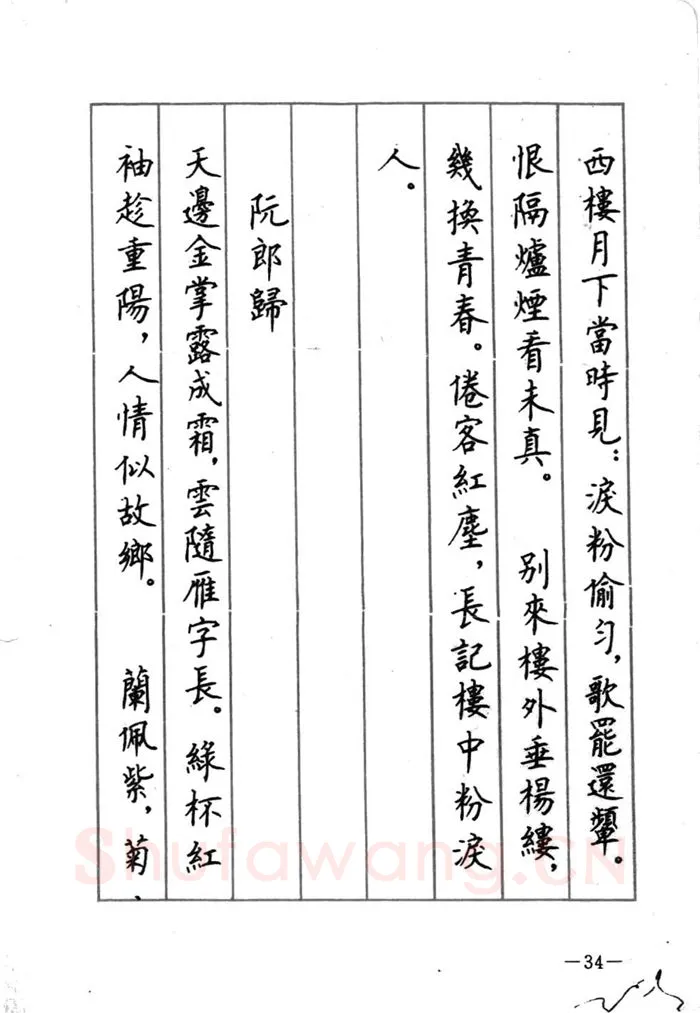 西樓月下當時見：淚粉偷匀，歌罷還顰。
恨隔爐煙看未真。　別來樓外垂楊縷，
幾換青春。倦客紅塵，長記樓中粉淚
人。
阮郎歸
天邊金掌露成霜，雲隨雁字長。綠杯紅
袖趁重陽，人情似故鄉。　蘭佩紫，菊
Shufawang.CN
—34—